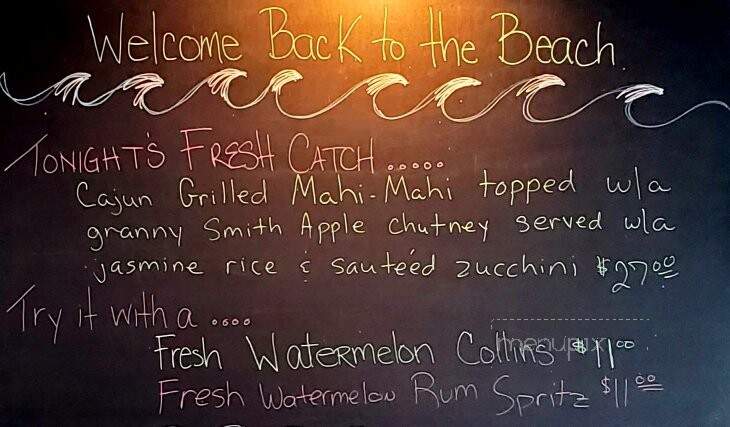 Welcome Back to the Beach
TONIGHT'S FRESH CATCH .....
Cajun Grilled Mahi-Mahi topped w/a
granny Smith Apple Chutney served w/a
jasmine rice & sauteéd zucchini $27.00
Try it with a ....
Fresh Watermelon Collins $11.00
menupix
Fresh Watermelon Rum Spritz $11.00